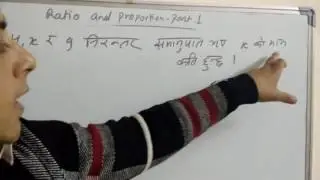 Ratio and proportion-Part 1
x र 9 निरन्तर समानुपात भए x को मान
कति हुन्छ ।